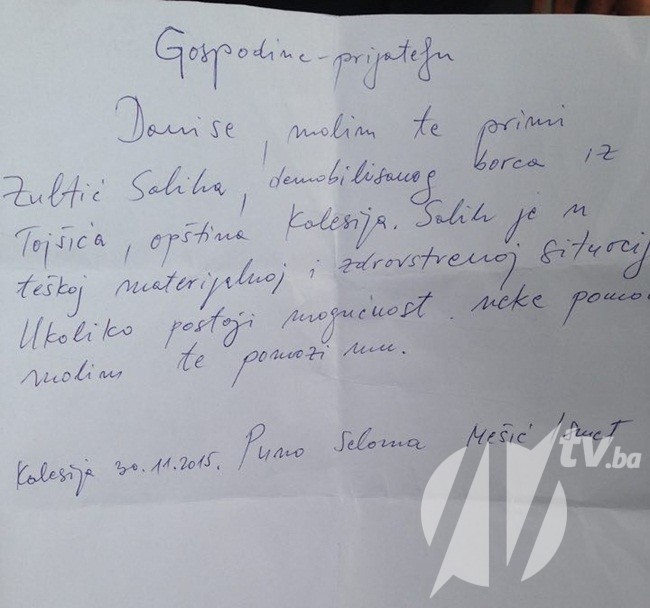 Gospodine-prijatelju
Danise, molim te primi
Zultić Saliha, demobilisanog borca iz
Tojšića, opština Kalesija. Salih je u
teškoj materijalnoj i zdrovstvenoj situacij
Ukoliko postoji mogućnost neke pomo
molim te pomozi mu.
Kalesija 30.11.2015. Puno seloma Mešić Ismet
tv.ba